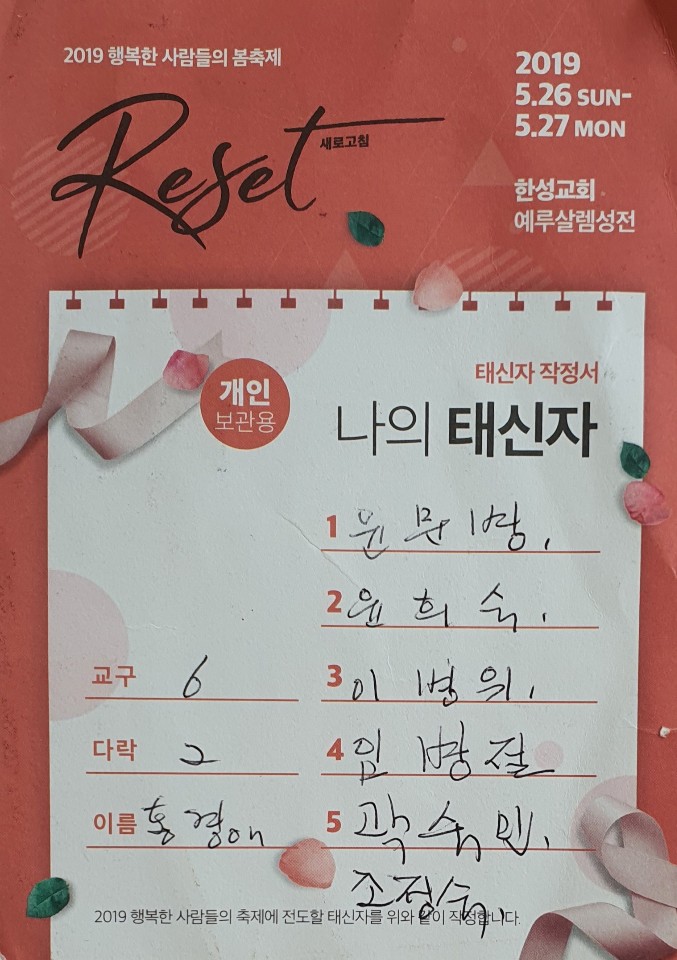 2019 행복한 사람들의 봄축제
Reset
새로고침
2019
5.26 SUN-
5.27 MON
한성교회
예루살렘성전
개인
보관용
태신자 작정서
나의 태신자
1 윤문병.
2 윤희숙.
3 이병의.
4 임병절
5 곽숙민.
조정숙.
교구 6
다락 2
이름 홍경애
2019 행복한 사람들의 축제에 전도할 태신자를 위와 같이 작정합니다.